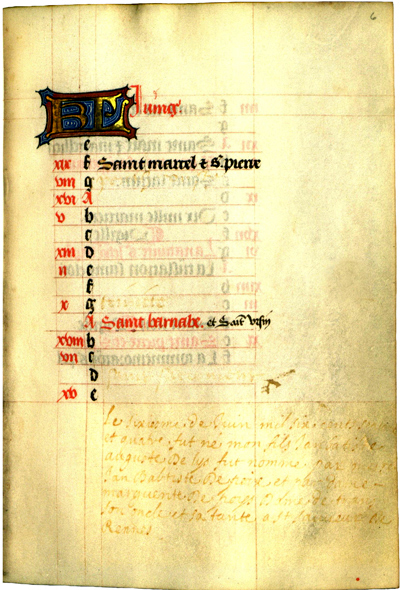 6
KL Juing
e
xix f Saint marcel & s. pierre
viii g
xvi A
v b
c
xiii d
ii e
f
x g
A Saint barnabe. et Saint Ursin
xviii b
vii c
d
xv e
Le sixieme de Juin mil six cents
et quatre fut ne mon fils Jan
auguste De lys fut nomme par
Jan Babtiste De et par dame
marguerite De
son oncle et sa tante a st sauveur de
Rennes